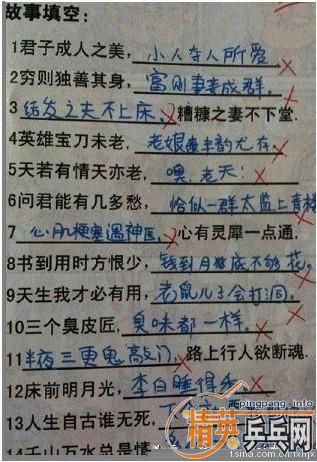 故事填空：
1君子成人之美，小人夺人所爱 ×
2穷则独善其身，富则妻妾成群。×
3结发之夫不上床，×糟糠之妻不下堂.
4英雄宝刀未老，老娘丰韵尤存。×
5天若有情天亦老，噢，老天！×
6问君能有几多愁，恰似一群太监上青楼
7心肌梗塞遇神医，×心有灵犀一点通，
8书到用时方恨少，钱到月底不够花。×
9天生我才必有用，老鼠儿子会打洞。×
10三个臭皮匠，臭味都一样。×
11半夜三更鬼敲门，×路上行人欲断魂.
12床前明月光，李白睡得香。×
13人生自古谁无死，
14千山万水总是情
pingpang_info.net
精英乒乓网
t.sina.com.cn/rxhjx